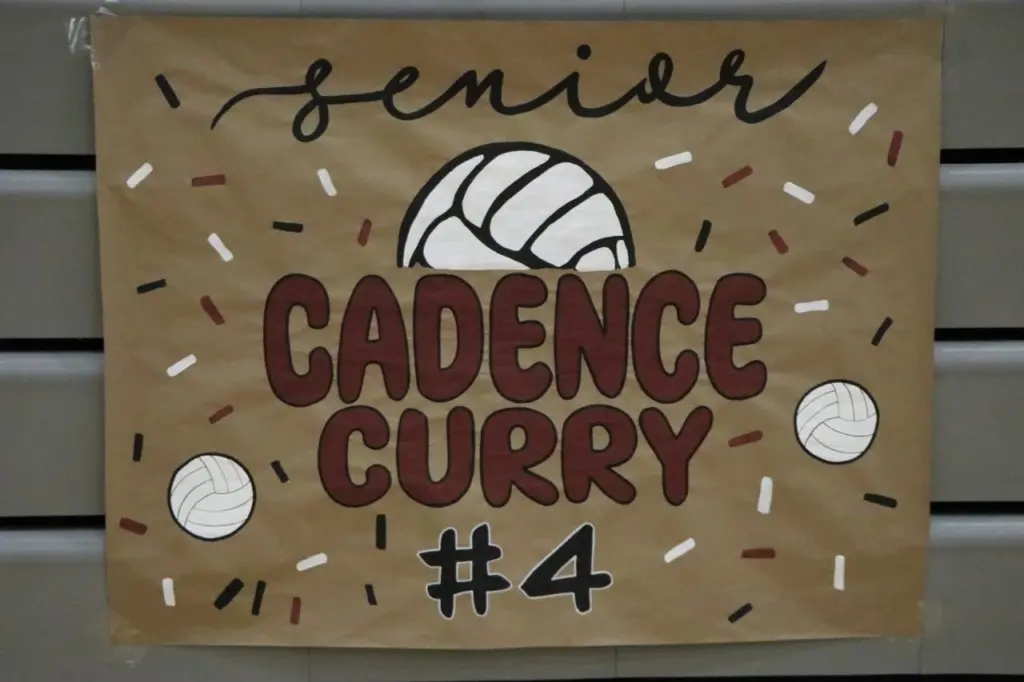 senior
CADENCE
CURRY
#4